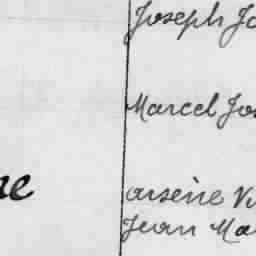 Joseph Jo
Marcel Jos
ne
arsène Vi
Jean Ma